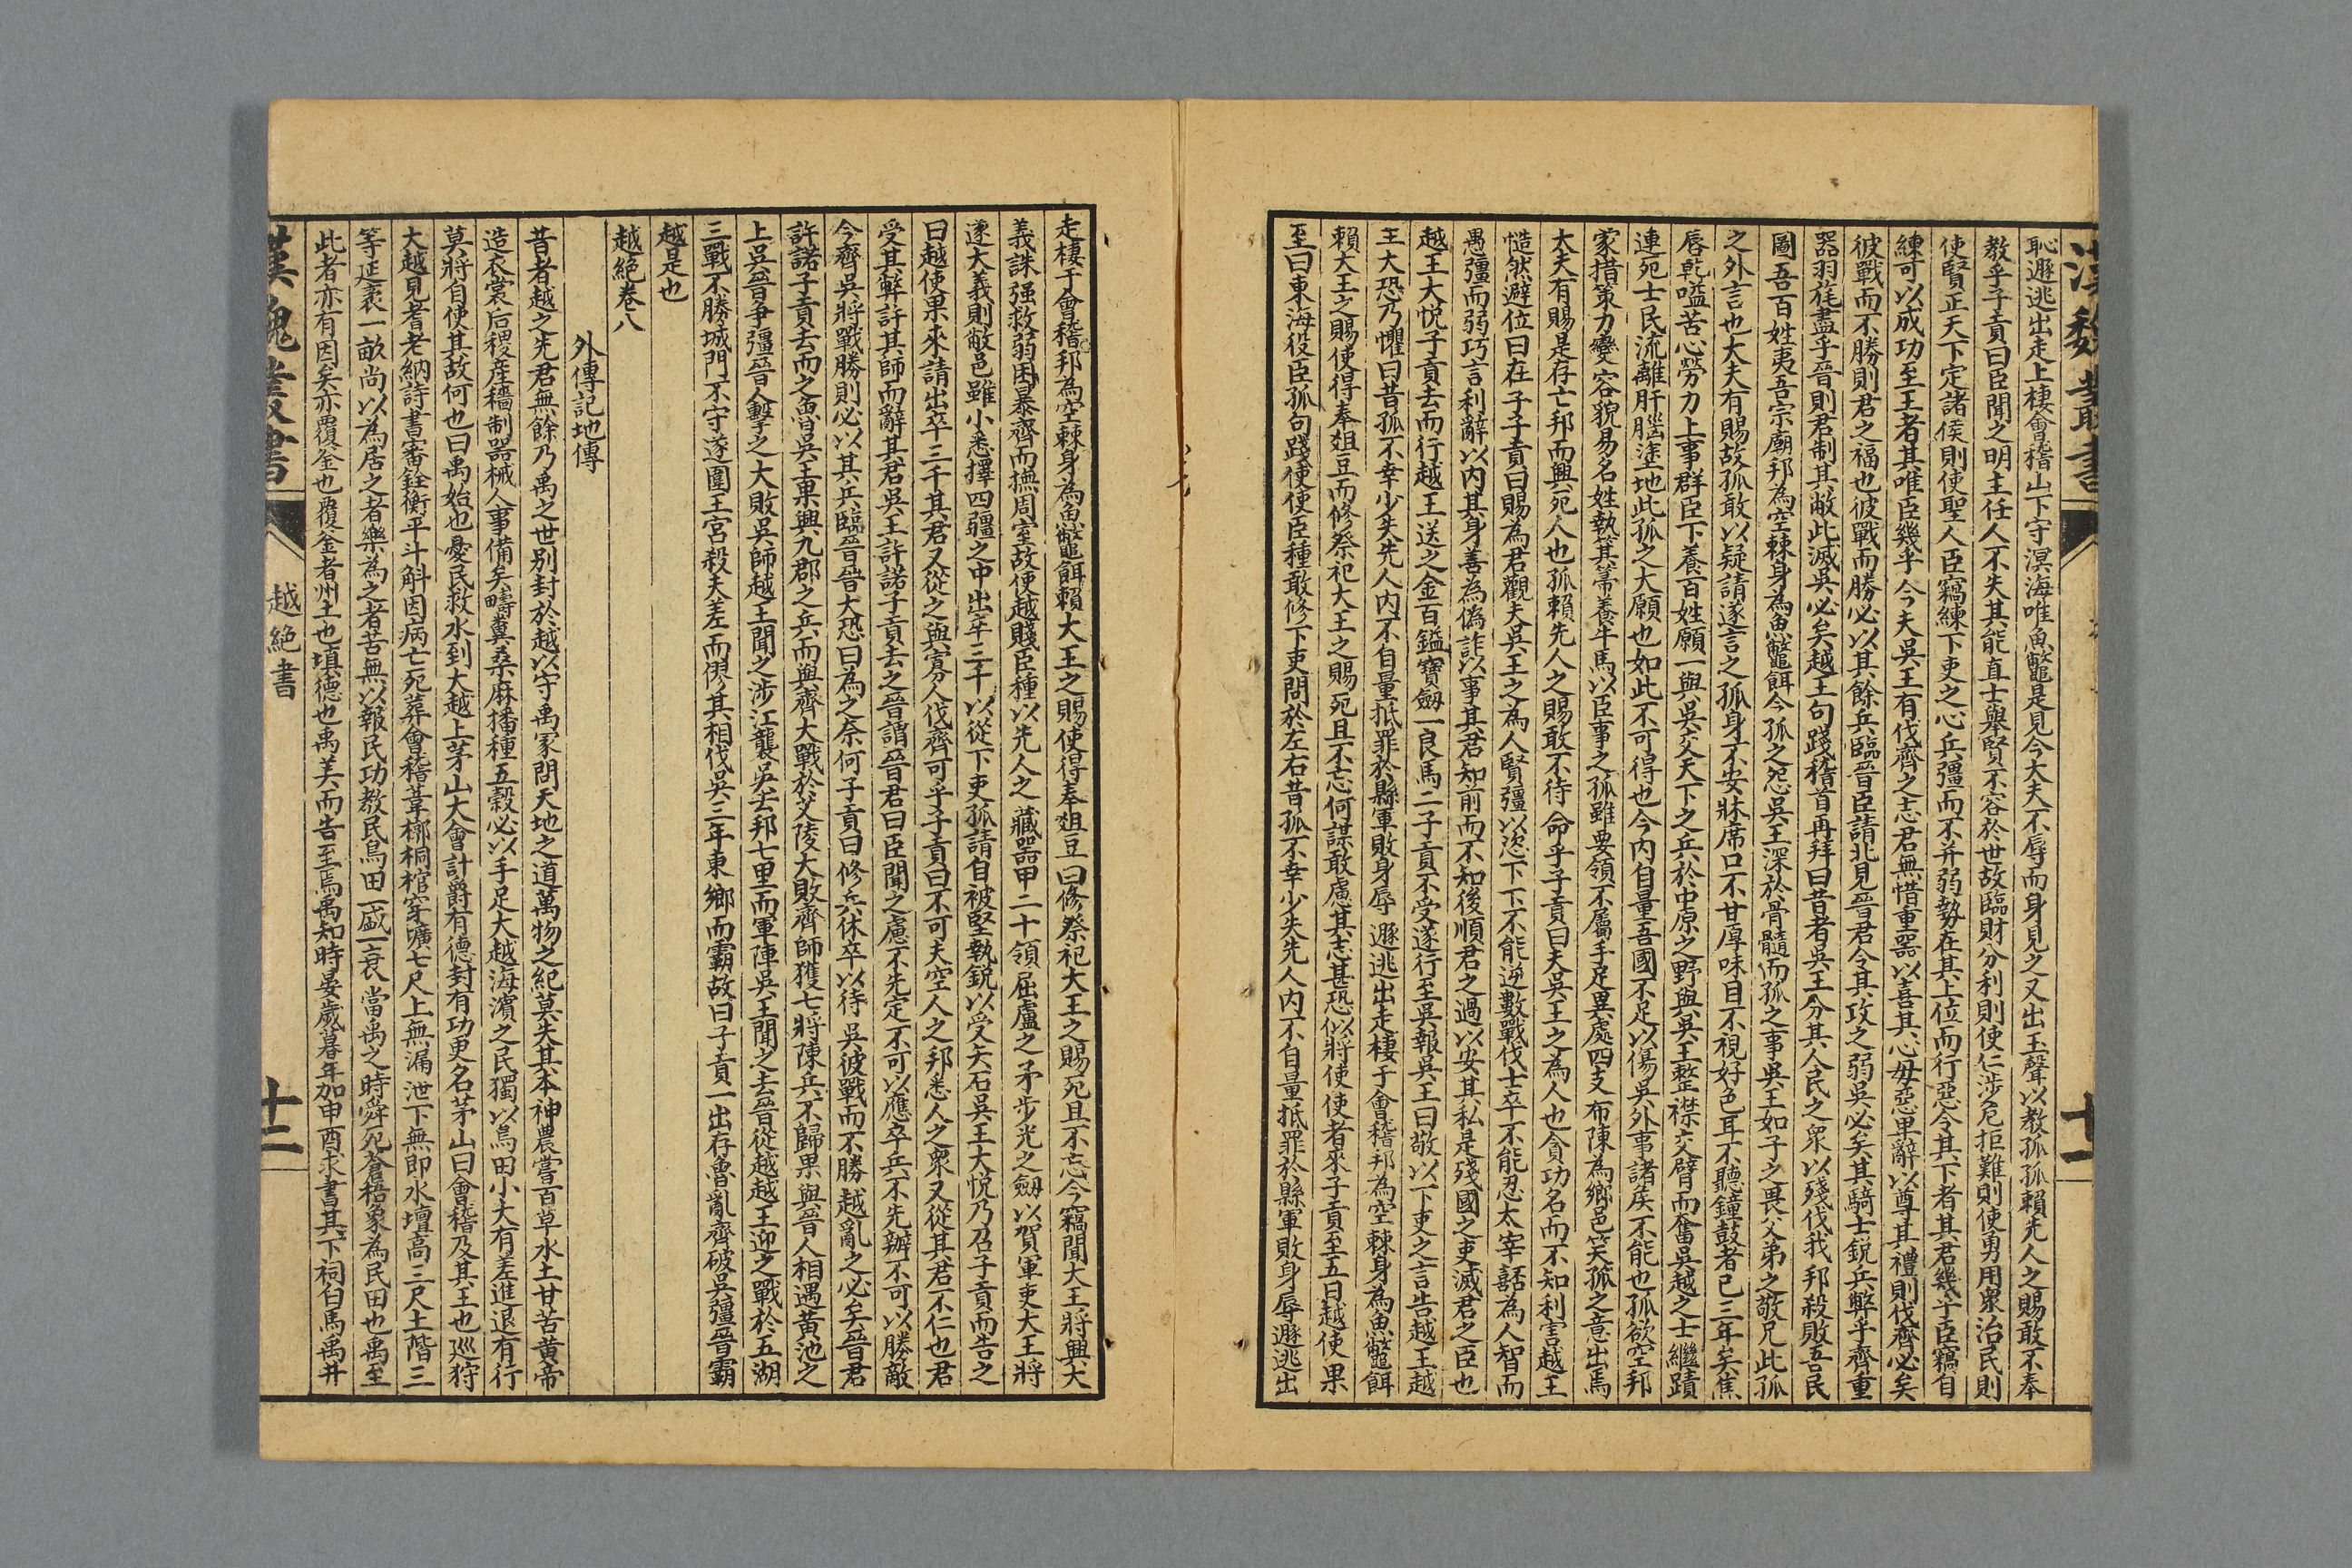 漢魏叢書
十一
恥遯逃出走上棲會稽山下守溟海唯魚鼈是見今大夫不辱而身見之又出玉聲以教孤孤賴先人之賜敢不奉
教乎子貢曰臣聞之明主任人不失其能直士舉賢不容於世故臨財分利則使仁涉危拒難則使勇用衆治民則
使賢正天下定諸侯則使聖人臣竊練下吏之心兵彊而不并弱勢在其上位而行惡令其下者其君幾乎臣竊自
練可以成功至王者其唯臣幾乎今夫吳王有伐齊之志君無惜重器以喜其心毋惡卑辭以尊其禮則伐齊必矣
彼戰而不勝則君之福也彼戰而勝必以其餘兵臨晉臣請北見晉君令共攻之弱吳必矣其騎士銳兵弊乎齊重
器羽旄盡乎晉則君制其敝此滅吳必矣越王句踐稽首再拜曰昔者吳王分其人民之衆以殘伐我邦殺敗吾民
圖吾百姓夷吾宗廟邦為空棘身為魚鼈餌今孤之怨吳王深於骨髓而孤之事吳王如子之畏父弟之敬兄此孤
之外言也大夫有賜故孤敢以疑請遂言之孤身不安牀席口不甘厚味目不視好色耳不聽鐘鼓者已三年矣焦
唇乾嗌苦心勞力上事群臣下養百姓願一與吳交天下之兵於中原之野與吳王整襟交臂而奮吳越之士繼蹟
連死士民流離肝腦塗地此孤之大願也如此不可得也今內自量吾國不足以傷吳外事諸侯不能也孤欲空邦
家措策力變容貌易名姓執箕箒養牛馬以臣事之孤雖要領不屬手足異處四支布陳為鄉邑笑孤之意出焉
大夫有賜是存亡邦而興死人也孤賴先人之賜敢不待命乎子貢曰夫吳王之為人也貪功名而不知利害越王
慥然避位曰在子子貢曰賜為君觀夫吳王之為人賢彊以恣下下不能逆數戰伐士卒不能忍太宰嚭為人智而
愚彊而弱巧言利辭以內其身善為偽詐以事其君知前而不知後順君之過以安其私是殘國之吏滅君之臣也
越王大悅子貢去而行越王送之金百鎰寶劒一良馬二子貢不受遂行至吳報吳王曰敬以下吏之言告越王越
王大恐乃懼曰昔孤不幸少失先人內不自量抵罪於縣軍敗身辱遯逃出走棲于會稽邦為空棘身為魚鼈餌
賴大王之賜使得奉俎豆而修祭祀大王之賜死且不忘何謀敢慮其志甚恐似將使使者來子貢至五日越使果
至曰東海役臣孤句踐使使臣種敢修下吏問於左右昔孤不幸少失先人內不自量抵罪於縣軍敗身辱遯逃出
走棲于會稽邦為空棘身為魚鼈餌賴大王之賜使得奉俎豆曰修祭祀大王之賜死且不忘今竊聞大王將興大
義誅强救弱困暴齊而撫周室故使越賤臣種以先人之藏器甲二十領屈盧之矛步光之劒以賀軍吏大王將
遂大義則敝邑雖小悉擇四疆之中出卒三千以從下吏孤請自被堅執銳以受矢石吳王大悅乃召子貢而告之
曰越使果來請出卒三千其君又從之與寡人伐齊可乎子貢曰不可夫空人之邦悉人之衆又從其君不仁也君
受其幣許其師而辭其君吳王許諾子貢去之晉謂晉君曰臣聞之慮不先定不可以應卒兵不先辦不可以勝敵
今齊吳將戰勝則必以其兵臨晉晉大恐曰為之奈何子貢曰修兵休卒以待吳彼戰而不勝越亂之必矣晉君
許諾子貢去而之魯吳王果興九郡之兵而與齊大戰於艾陵大敗齊師獲七將陳兵不歸果與晉人相遇黃池之
上吳晉爭彊晉人擊之大敗吳師越王聞之涉江襲吳去邦七里而軍陣吳王聞之去晉從越越王迎之戰於五湖
三戰不勝城門不守遂圍王宮殺夫差而僇其相伐吳三年東鄉而霸故曰子貢一出存魯亂齊破吳彊晉霸
越是也
越絕卷八
外傳記地傳
昔者越之先君無餘乃禹之世別封於越以守禹冢問天地之道萬物之紀莫失其本神農嘗百草水土甘苦黃帝
造衣裳后稷產穡制器械人事備矣疇糞桑麻播種五穀必以手足大越海濱之民獨以鳥田小大有差進退有行
莫將自使其故何也曰禹始也憂民救水到大越上茅山大會計爵有德封有功更名茅山曰會稽及其王也巡狩
大越見耆老納詩書審銓衡平斗斛因病亡死葬會稽葦槨桐棺穿壙七尺上無漏泄下無即水壇高三尺土階三
等延袤一畝尚以為居之者樂為之者苦無以報民功教民鳥田一盛一衰當禹之時舜死蒼梧象為民田也禹至
此者亦有因矣亦覆釜也覆釜者州土也填德也禹美而告至焉禹知時晏歲暮年加申酉求書其下祠白馬禹井
漢魏叢書
越絕書
十二